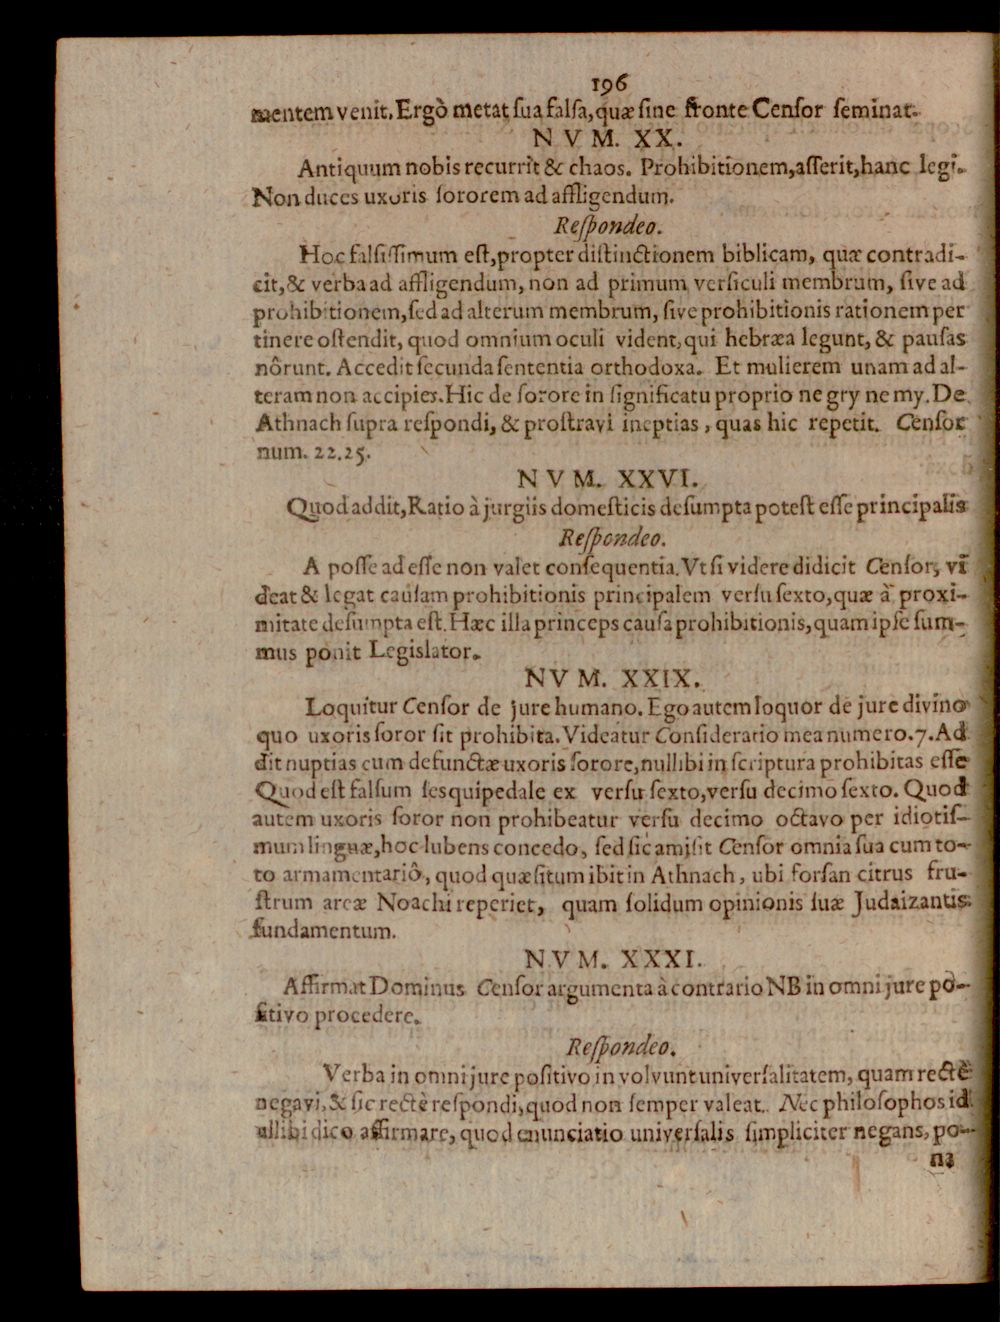 196
mentem venit. Ergò metat sua falsa, quæ sine fronte Censor seminat.
NVM. XX.
Antiquum nobis recurrit & chaos. Prohibitionem, asserit, hanc legi.
Non duces uxoris sororem ad affligendum.
Respondeo.
Hoc falsissimum est, propter distinctionem biblicam, quæ contradi-
cit, & verba ad affligendum, non ad primum versiculi membrum, sive ad
prohibitionem, sed ad alterum membrum, sive prohibitionis rationem per
tinere ostendit, quod omnium oculi vident, qui hebræa legunt, & pausas
nôrunt. Accedit secunda sententia orthodoxa. Et mulierem unam ad al-
teram non accipies. Hic de sorore in significatu proprio ne gry ne my. De
Athnach supra respondi, & prostravi ineptias, quas hic repetit. Censor
num. 22.25.
NVM. XXVI.
Quod addit, Ratio à jurgiis domesticis desumpta potest esse principalis
Respondeo.
A posse ad esse non valet consequentia. Vt si videre didicit Censor, vi
deat & legat causam prohibitionis principalem versu sexto, quæ à proxi-
mitate desumpta est. Hæc illa princeps causa prohibitionis, quam ipse sum-
mus ponit Legislator.
NVM. XXIX.
Loquitur Censor de jure humano. Ego autem loquor de jure divino
quo uxoris soror sit prohibita. Videatur Consideratio mea numero. 7. Ad
dit nuptias cum defunctæ uxoris sorore, nullibi in scriptura prohibitas esse
Quod est falsum sesquipedale ex versu sexto, versu decimo sexto. Quod
autem uxoris soror non prohibeatur versu decimo octavo per idiotis-
mum linguæ, hoc lubens concedo, sed sic amisit Censor omnia sua cum to-
to armamentariô, quod quæsitum ibit in Athnach, ubi forsan citrus fru-
strum arcæ Noachi reperiet, quam solidum opinionis suæ Judaizantis
fundamentum.
NVM. XXXI.
Affirmat Dominus Censor argumenta à contrario NB in omni jure po-
sitivo procedere.
Respondeo.
Verba in omni jure positivo involvunt universalitatem, quam rectè
negavi, & sic rectè respondi, quod non semper valeat. Nec philosophos id
ullibi dico affirmare, quod enunciatio universalis simpliciter negans, po-
na